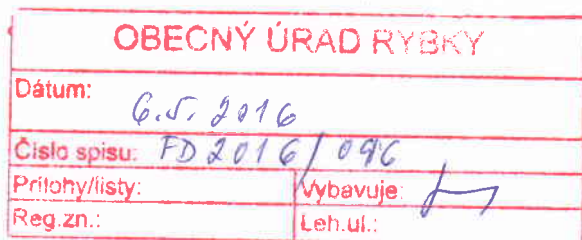 OBECNÝ ÚRAD RYBKY
Dátum: 6.5. 2016
Číslo spisu: FD 2016/096
Prílohy/listy: Vybavuje:
Reg.zn.: Leh.ul.: